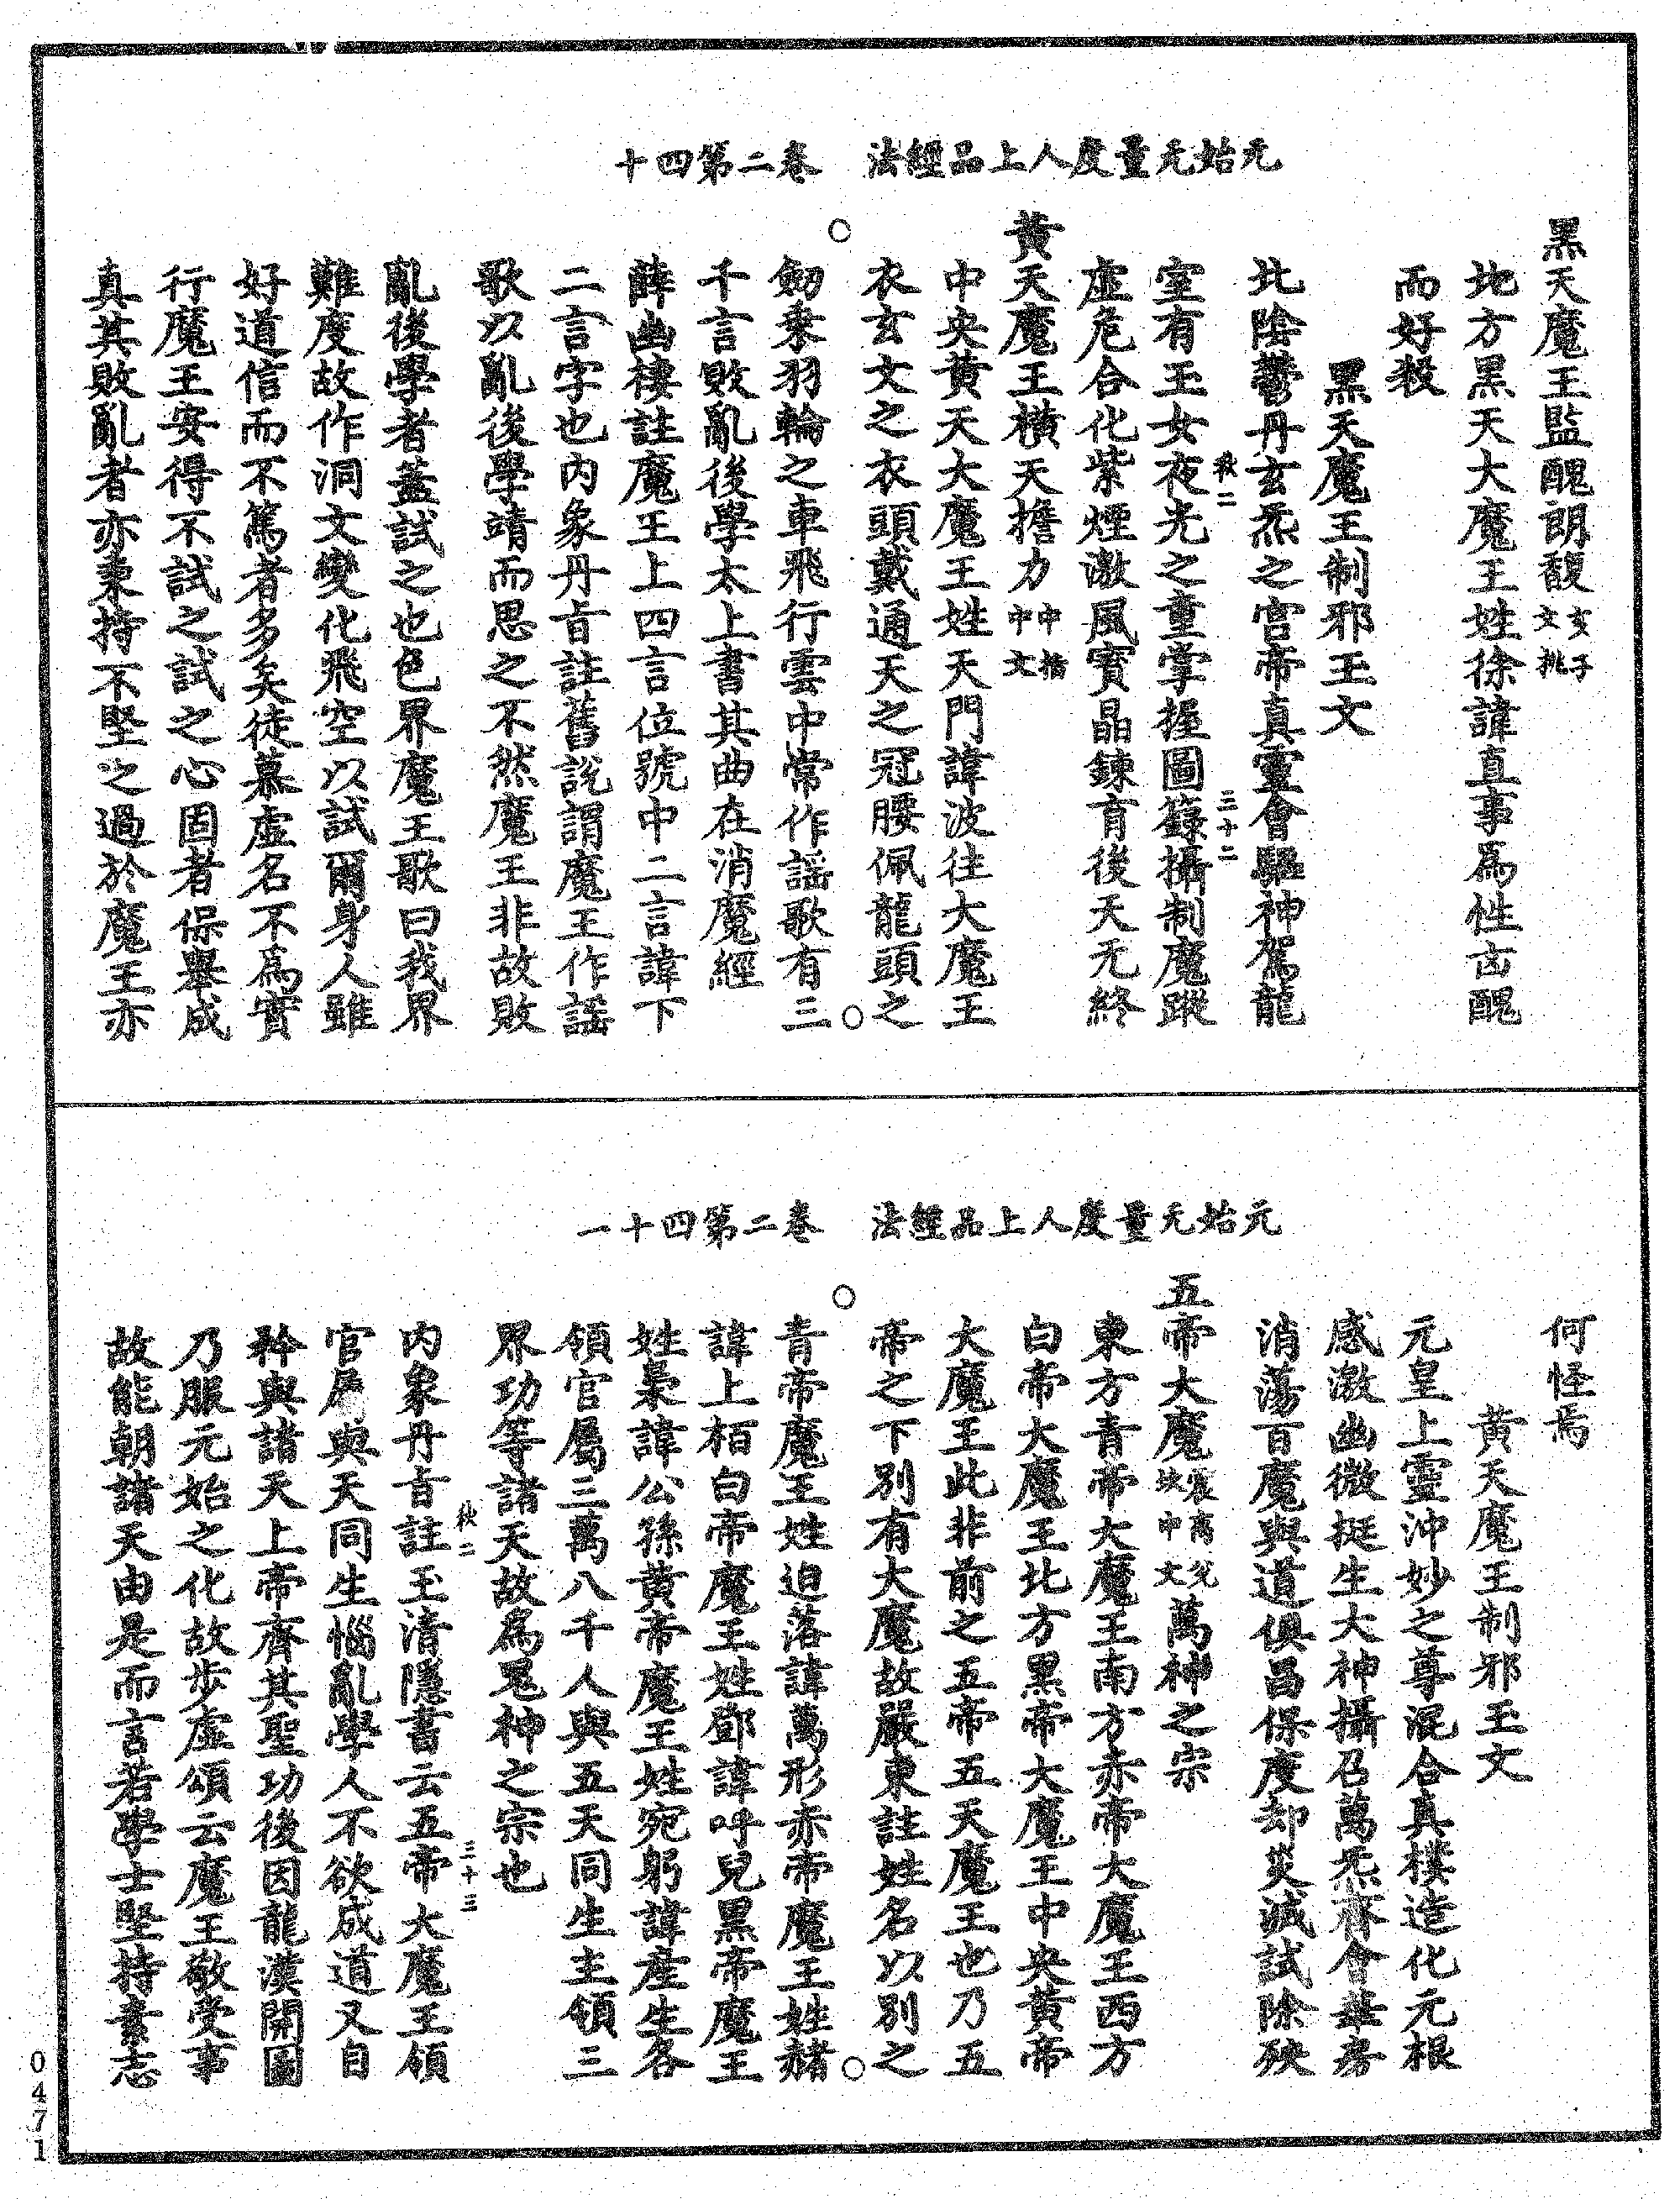 元始无量度人上品經法　卷二第四十
黑天魔王監醜朗馥玄子文挑
北方黑天大魔王姓徐諱直事為性凶醜
而好殺
黑天魔王制邪玉文
北陰鬱丹玄炁之宮帝真靈會驅神駕龍
秋二　三十二
室有玉女夜光之童掌握圖籙攝制魔蹤
虛危合化紫煙激風寶晶鍊育後天无終
黃天魔王橫天擔力中揩中文
中央黃天大魔王姓天門諱波徃大魔王
衣玄文之衣頭戴通天之冠腰佩龍頭之
劒乗羽輪之車飛行雲中常作謡歌有三
千言敗亂後學太上書其曲在消魔經
薛幽棲註魔王上四言位號中二言諱下
二言字也内象丹旨註舊說謂魔王作謡
歌以亂後學靖而思之不然魔王非故敗
亂後學者蓋試之也色界魔王歌曰我界
難度故作洞文變化飛空以試爾身人雖
好道信而不篤者多矣徒慕虛名不爲實
行魔王安得不試之試之心固者保舉成
真其敗亂者亦秉持不堅之過於魔王亦
元始无量度人上品經法　卷二第四十一
何怪焉
黄天魔王制邪玉文
元皇上靈沖妙之尊混合真樸造化元根
感激幽微挺生大神攝召萬炁齊會華房
消蕩百魔與道俱昌保度却災滅試除殃
五帝大魔震离兌坎中文萬神之宗
東方青帝大魔王南方赤帝大魔王西方
白帝大魔王北方黑帝大魔王中央黄帝
大魔王此非前之五帝五天魔王也乃五
帝之下別有大魔故嚴東註姓名以別之
青帝魔王姓迫落諱萬形赤帝魔王姓赭
諱上栢白帝魔王姓鄧諱呼兒黑帝魔王
姓梟諱公孫黄帝魔王姓宛躬諱産生各
領官屬三萬八千人與五天同生主領三
界功等諸天故爲鬼神之宗也
秋二　三十三
内象丹旨註玉清隱書云五帝大魔王領
官屬與天同生惱亂學人不欲成道又自
矜與諸天上帝齊其聖功後因龍漢開圖
乃服元始之化故步虛頌云魔王敬受事
故能朝諸天由是而言若學士堅持素志
0471